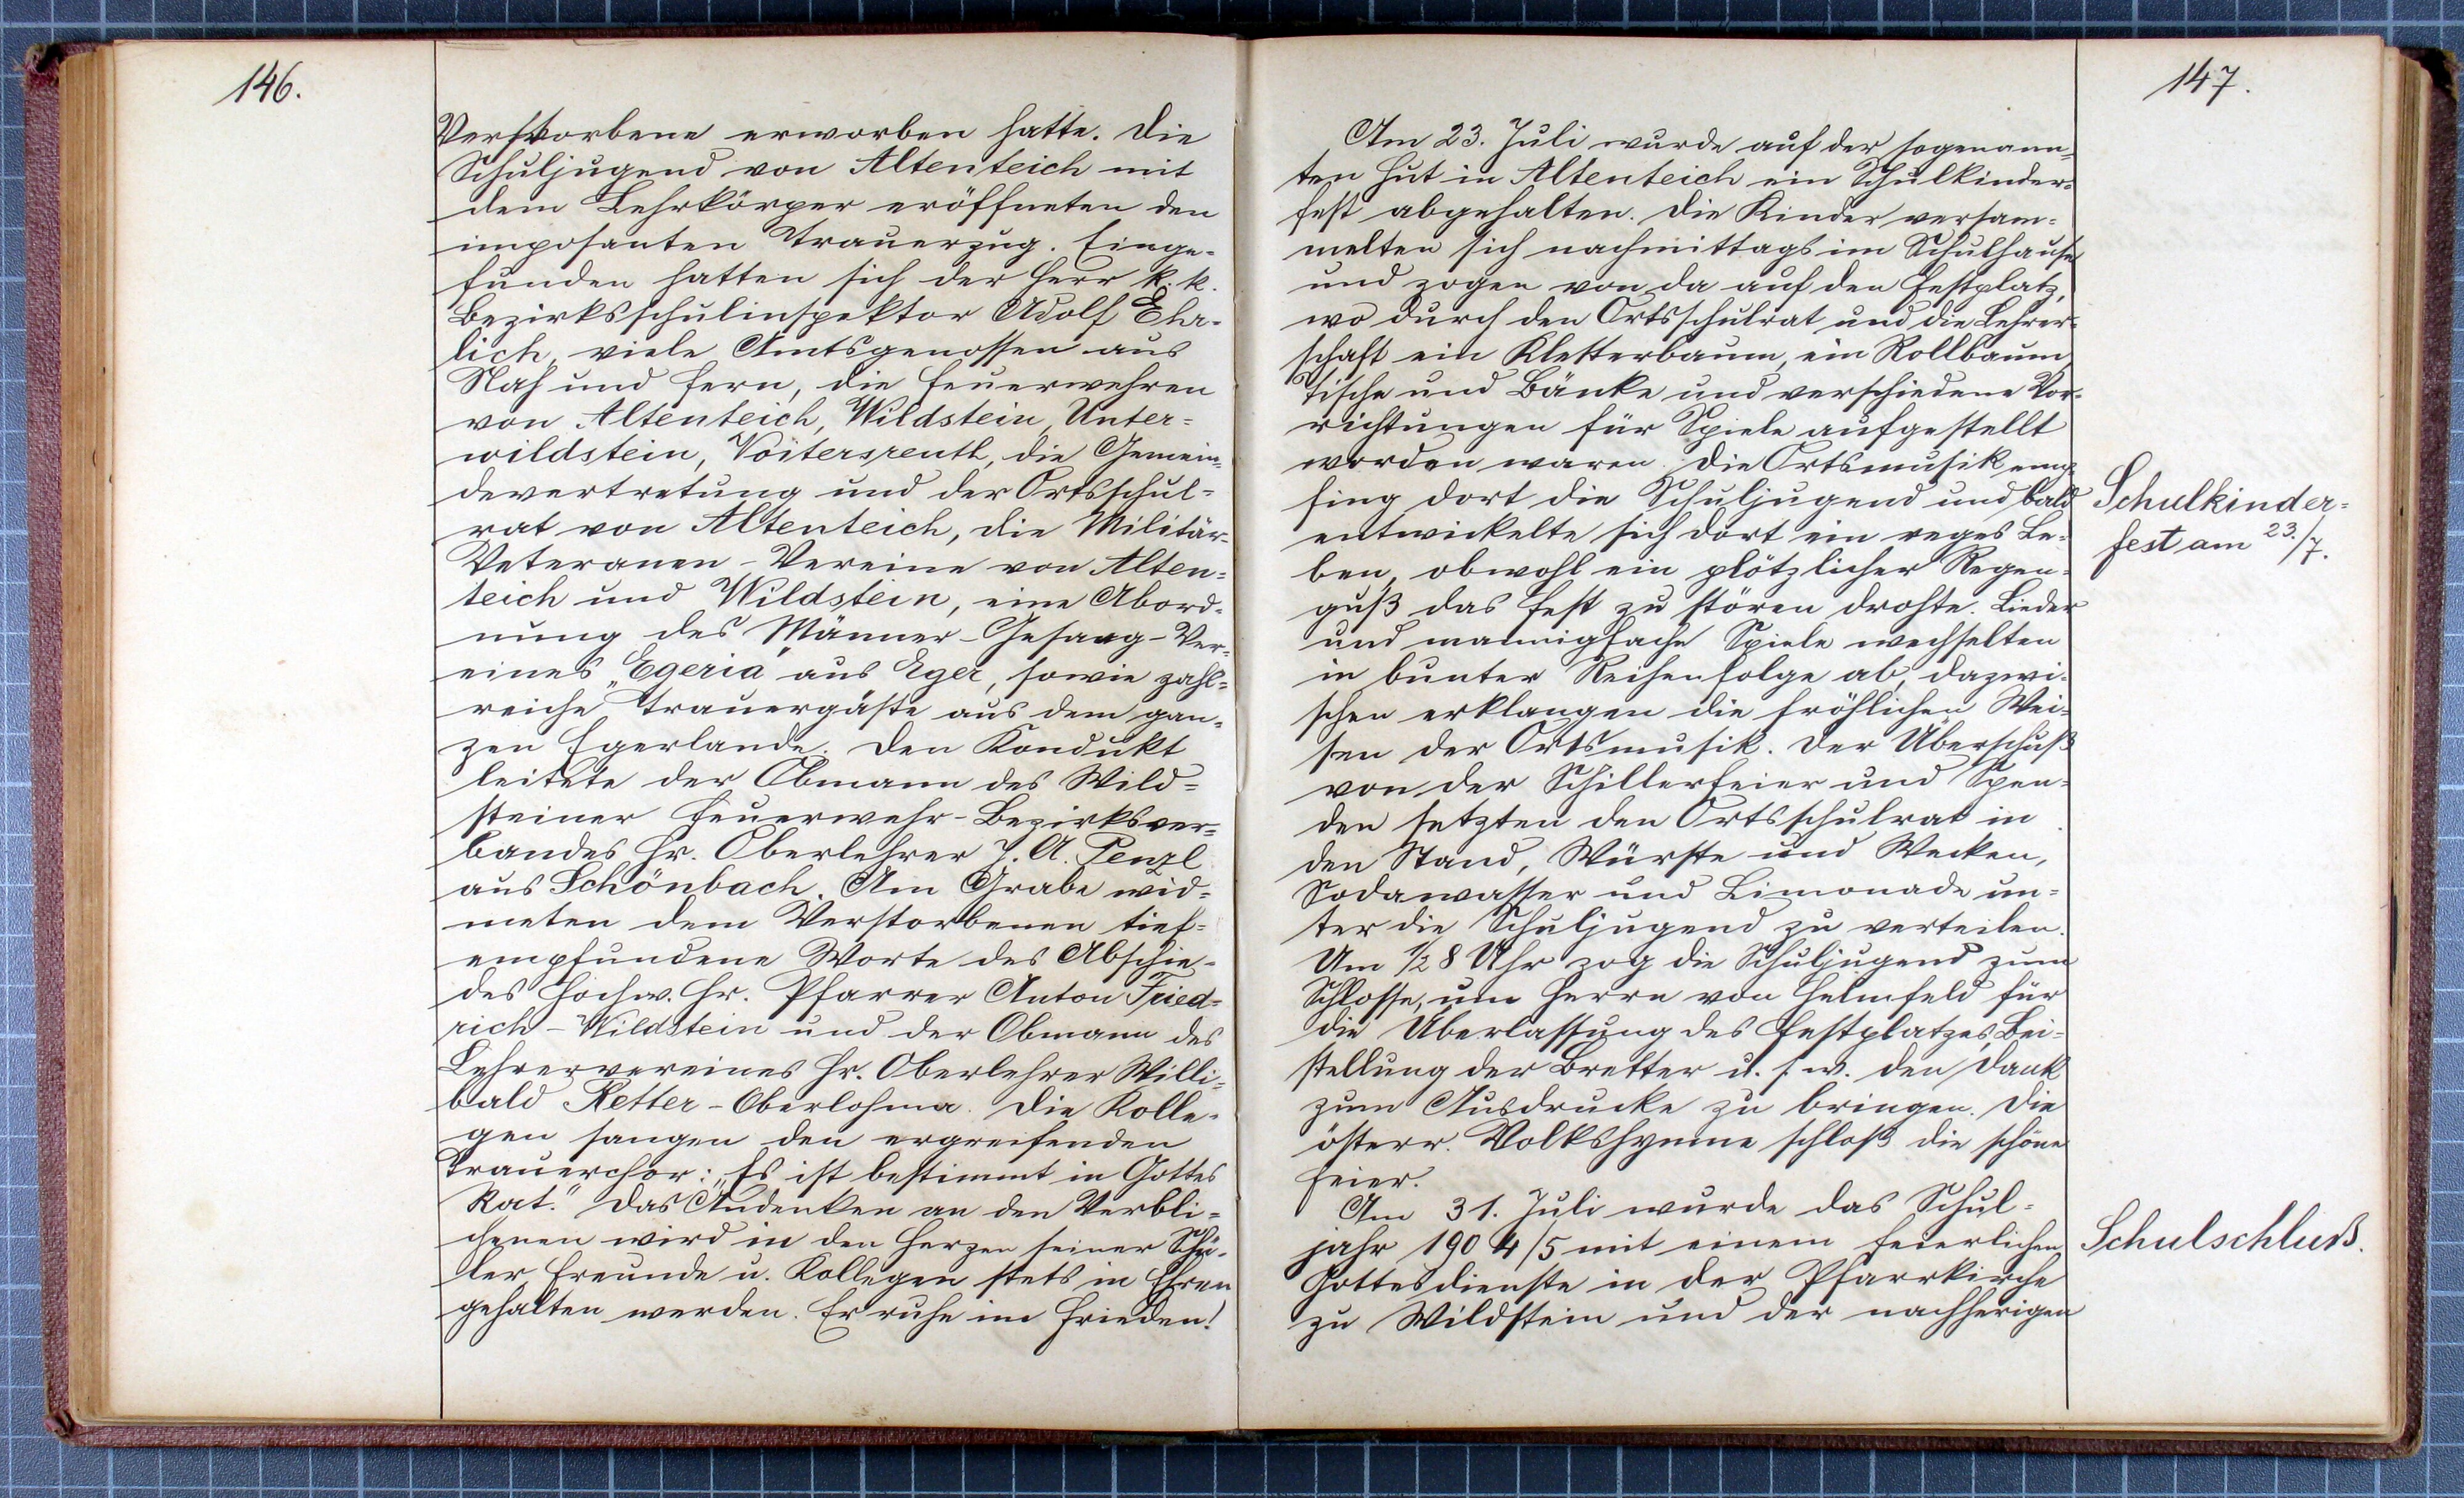 146.
Verstorbene erworben hatte. Die
Schuljugend von Altenteich mit
dem Lehrkörper eröffneten den
imposanten Trauerzug. Einge-
funden hatten sich der Herr k. k.
Bezirksschulinspektor Adolf Ehr-
lich, viele Amtsgenossen aus
Nah und Fern, die Feuerwehren
von Altenteich, Wildstein, Unter=
wildstein, Voitersreuth, die Gemein-
devertretung und der Ortsschul=
rat von Altenteich, die Militär-
Veteranen-Vereine von Alten=
teich und Wildstein, eine Abord-
nung des Männer-Gesang-Ver-
eines „Egeria" aus Eger, sowie zahl=
reiche Trauergäste aus dem gan-
zen Egerlande. Den Kondukt
leitete der Obmann des Wild=
steiner Feuerwehr-Bezirksver=
bandes Hr. Oberlehrer J. A. Penzl
aus Schönbach. Am Grabe wid=
meten dem Verstorbenen tief=
empfundene Worte des Abschie-
des Hochw. Hr. Pfarrer Anton Fried=
rich-Wildstein und der Obmann des
Lehrervereines Hr. Oberlehrer Willi=
bald Retter-Oberlohma. Die Kolle-
gen sangen den ergreifenden
Trauerchor: „Es ist bestimmt in Gottes
Rat." Das Andenken an den Verbli=
chenen wird in den Herzen seiner Schü-
ler, Freunde u. Kollegen stets in Ehren
gehalten werden. Er ruhe im Frieden!
147.
Am 23. Juli wurde auf der sogenann-
ten Hut in Altenteich ein Schulkinder=
fest abgehalten. Die Kinder versam=
melten sich nachmittags im Schulhause
und zogen von da auf den Festplatz,
wo durch den Ortsschulrat und die Lehrer=
schaft ein Kletterbaum, ein Rollbaum,
Tische und Bänke und verschiedene Vor=
richtungen für Spiele aufgestellt
worden waren. Die Ortsmusik emp=
fing dort die Schuljugend und bald
entwickelte sich dort ein reges Le=
ben, obwohl ein plötzlicher Regen=
guß das Fest zu stören drohte. Lieder
und mannigfache Spiele wechselten
in bunter Reihenfolge ab, dazwi-
schen erklangen die fröhlichen Wei=
sen der Ortsmusik. Der Überschuß
von der Schillerfeier und Spen=
den setzten den Ortsschulrat in
den Stand, Würste und Wecken,
Sodawasser und Limonade un=
ter die Schuljugend zu verteilen.
Um 1/2 8 Uhr zog die Schuljugend zum
Schlosse, um Herrn von Helmfeld für
die Überlassung des Festplatzes, Bei=
stellung der Bretter u. s. w. den Dank
zum Ausdrucke zu bringen. Die
österr. Volkshymne schloß die schöne
Feier.
Am 31. Juli wurde das Schul=
jahr 1904/5 mit einem feierlichen
Gottesdienste in der Pfarrkirche
zu Wildstein und der nachherigen
Schulkinder=
fest am 23./7.
Schulschluß.